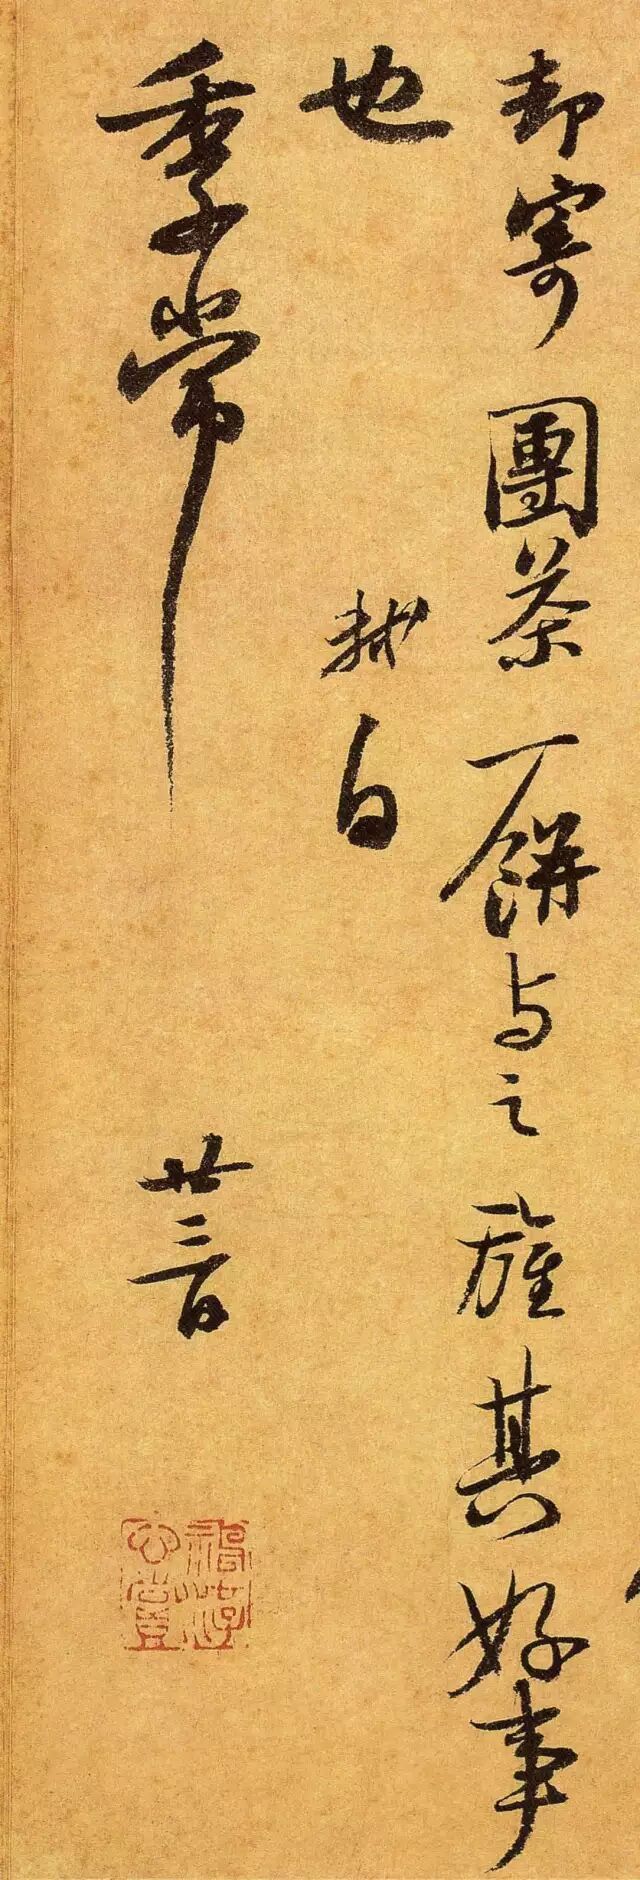 却寄團茶一餅与之旌其好事
也　軾白
季常　廿三日